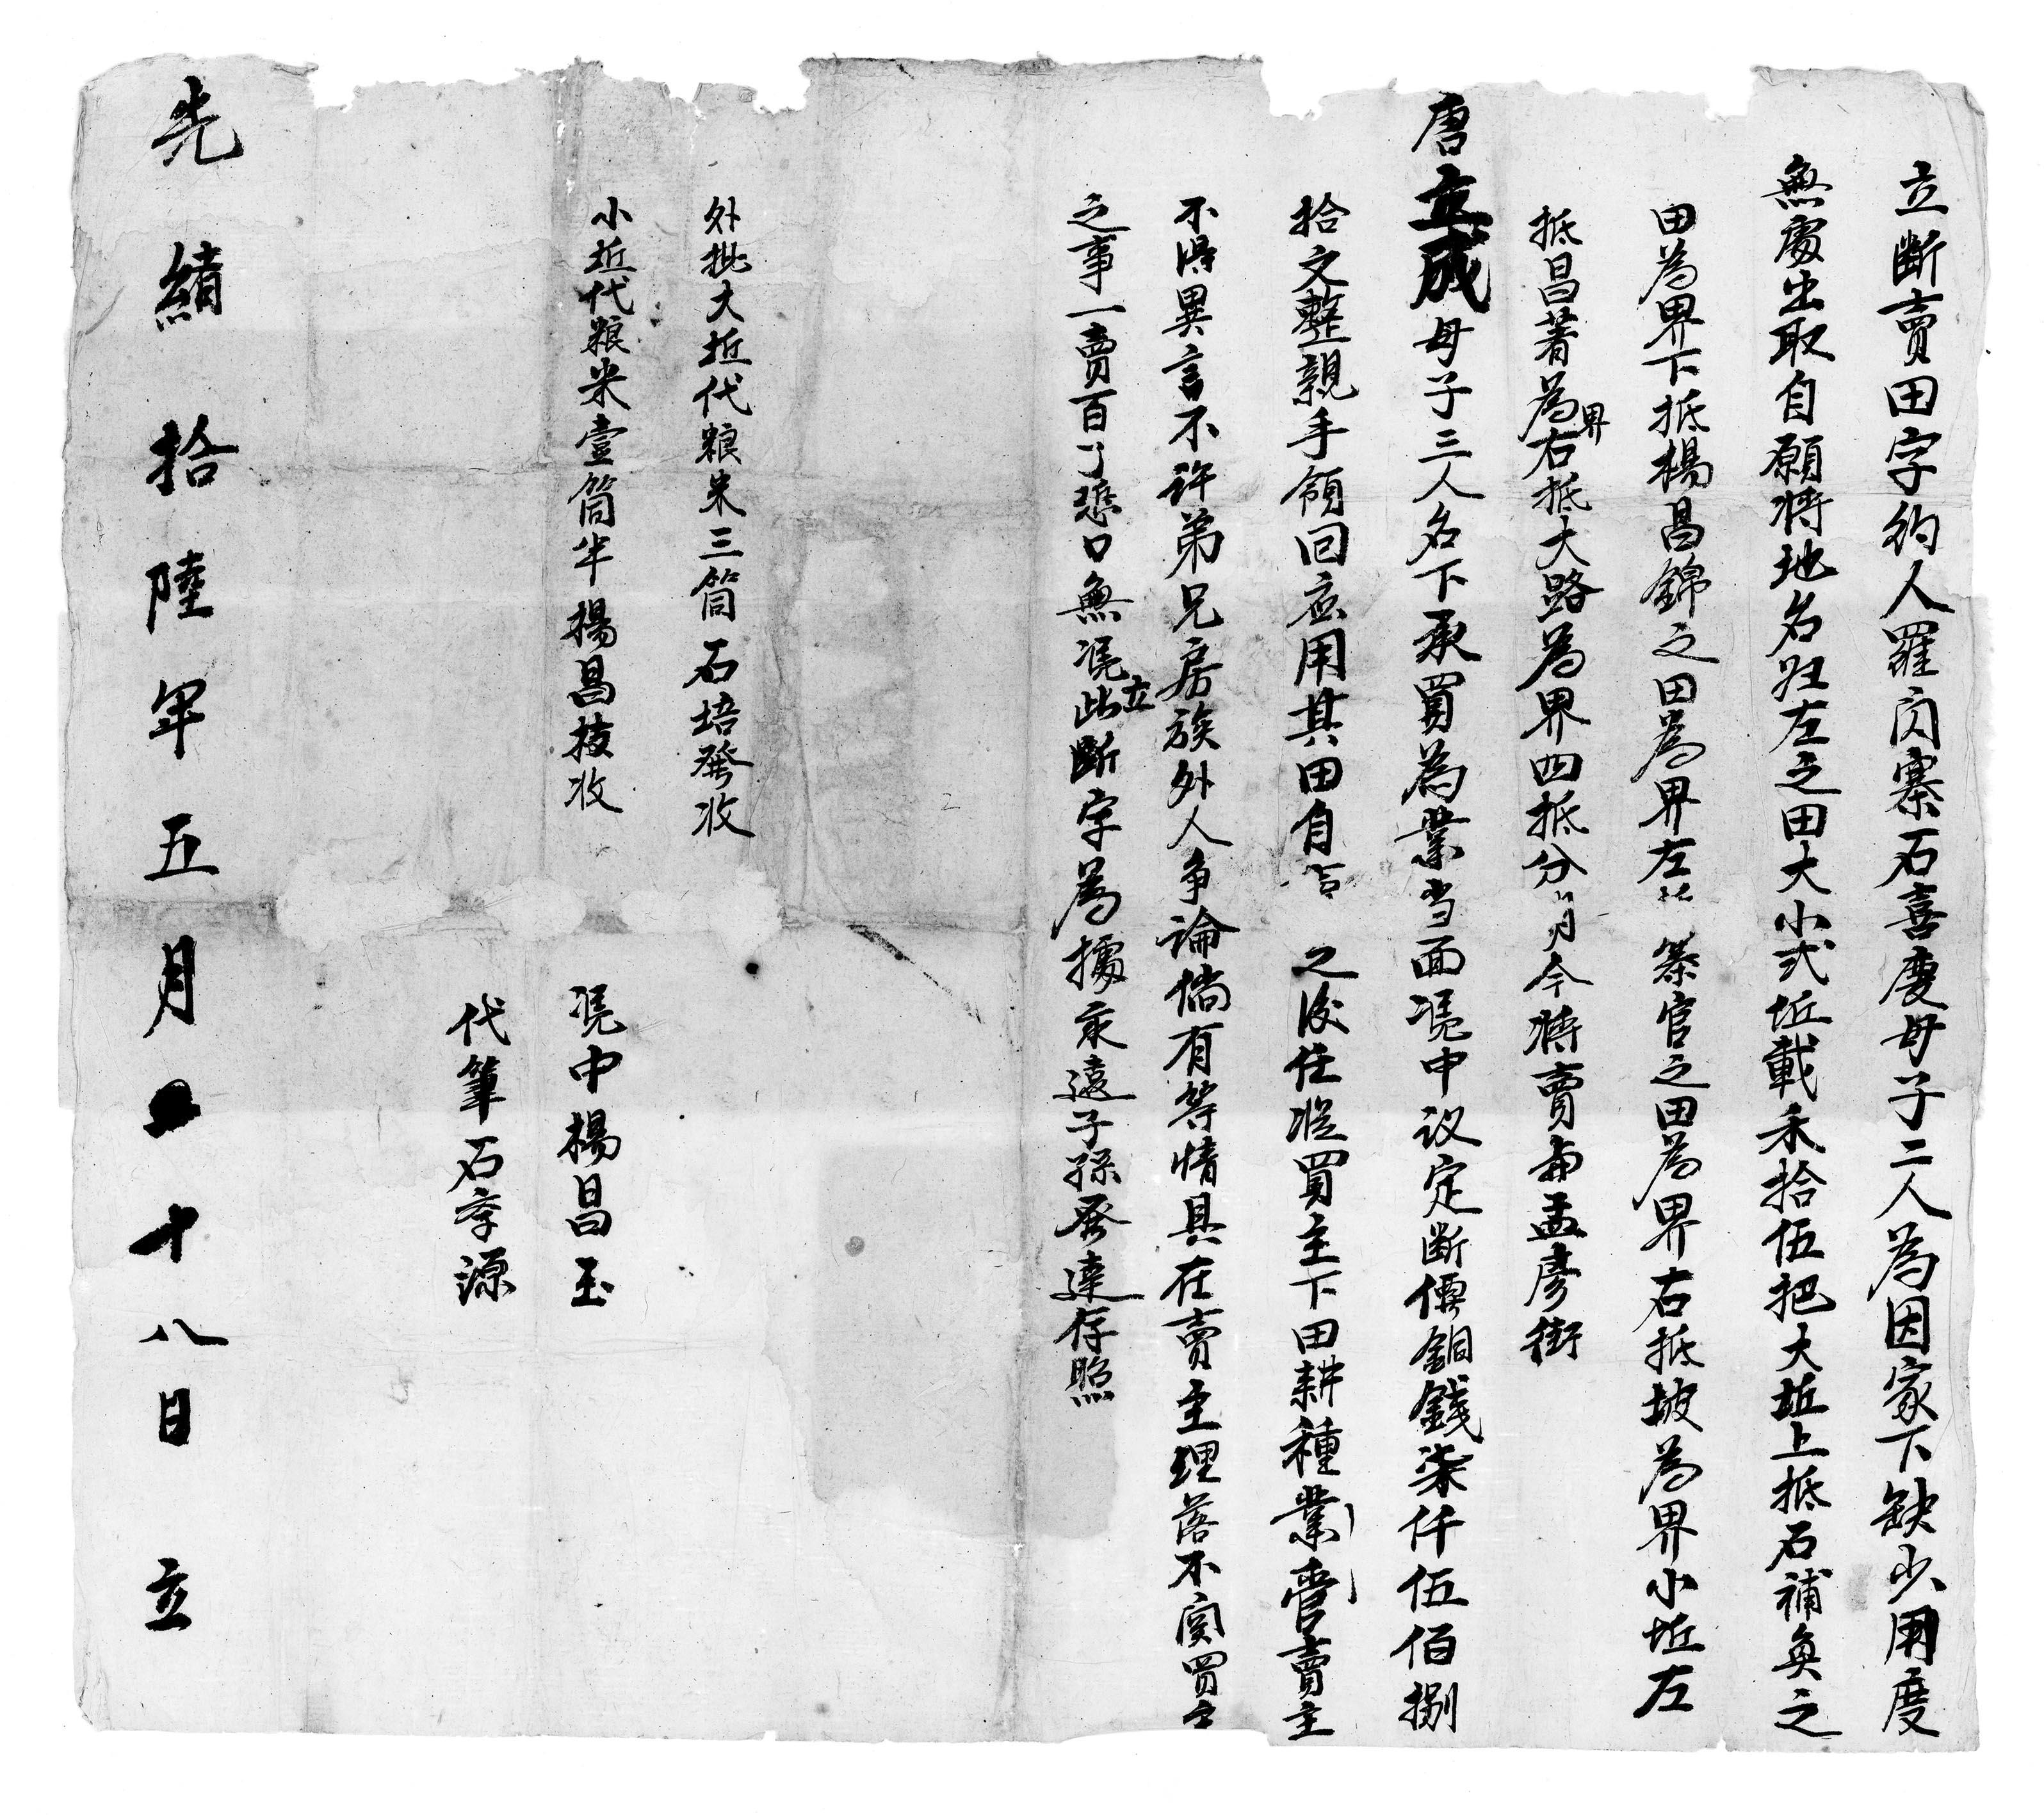 立斷賣田字約人羅闪寨石喜慶母子二人為因家下缺少用度
無處出取自願將地名归左之田大小弍坵載禾拾伍把大坵上抵石補奐之
田為界下抵楊昌錦之田為界左 榮官之田為界右抵坡為界小坵左
抵昌著為界右抵大路為界四抵分明今將賣與孟彦街
唐立成母子三人名下承買為業当面凴中议定断價銅錢柒仟伍佰捌
拾文整親手領回应用其田自 之後任從買主下田耕種業管賣主
不得異言不許弟兄房族外人争論倘有等情具在賣主理落不関買主
之事一賣百了恐口無凴立此斷字為據永遠子孫發達存照
外批大坵代粮米三筒石培發收
小坵代粮米壹筒半楊昌枝收
凴中楊昌玉
代筆石孝源
光緒拾陸年五月十八日立